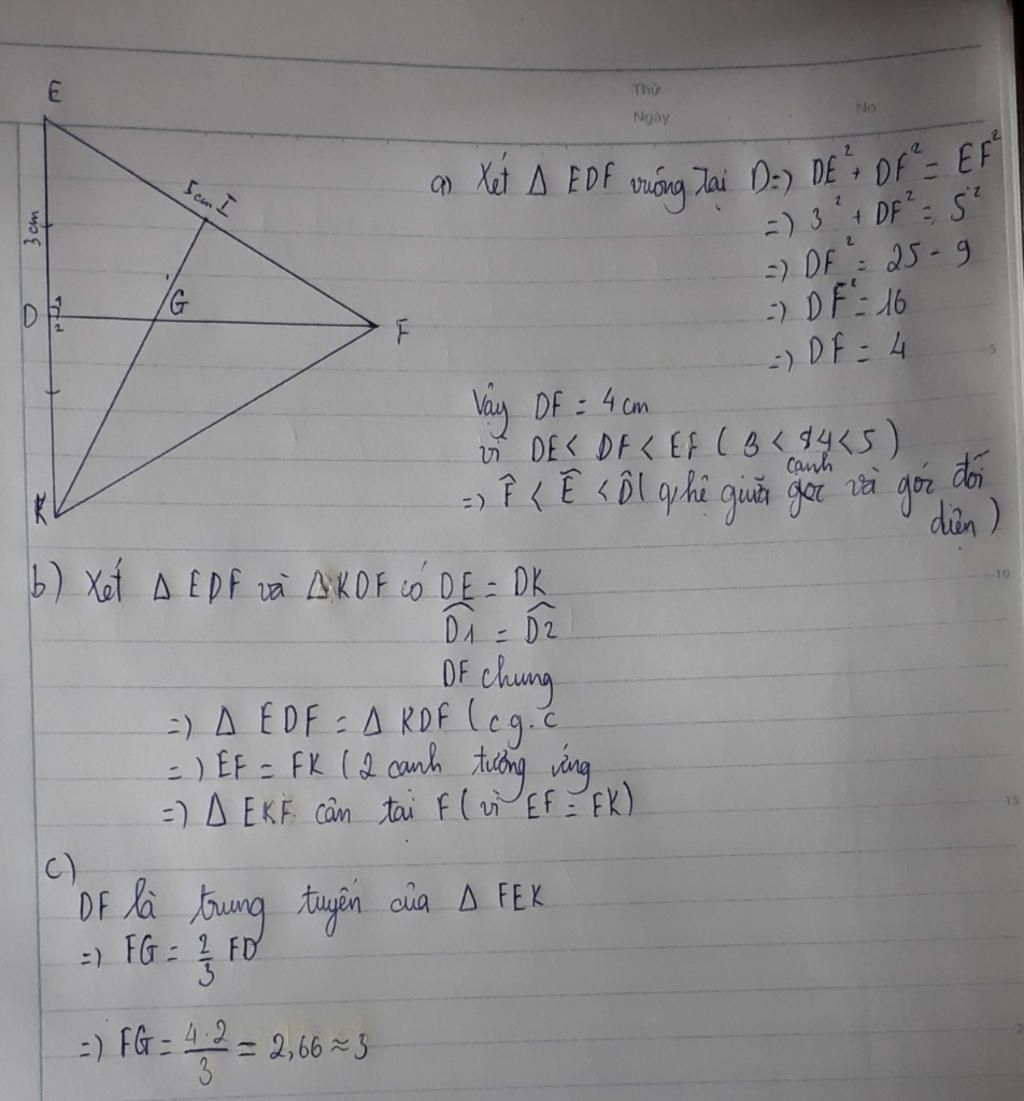 Thứ
Ngày
No
E
5cm I
3cm
D 1
2
G
F
K
a) Xét Δ EDF vuông tại D=) DE² + DF² = EF²
=) 3² + DF² = 5²
=) DF² = 25 - 9
=) DF² = 16
=) DF = 4
Vậy DF = 4cm
vì DE < DF < EF ( 3 < 4 < 5 )
cạnh
=) F̂ < Ê < D̂ ( q/hệ giữa góc và góc đối
diện )
b) Xét Δ EDF và Δ KDF có DE = DK
D1 = D2
DF chung
=) Δ EDF = Δ KDF ( c g . c
=) EF = FK ( 2 cạnh tương ứng
=) Δ EKF cân tại F ( vì EF = FK )
c)
DF là trung tuyến của Δ FEK
=) FG = 2/3 FD
=) FG = 4.2/3 = 2,66 ≈ 3
5
10
15